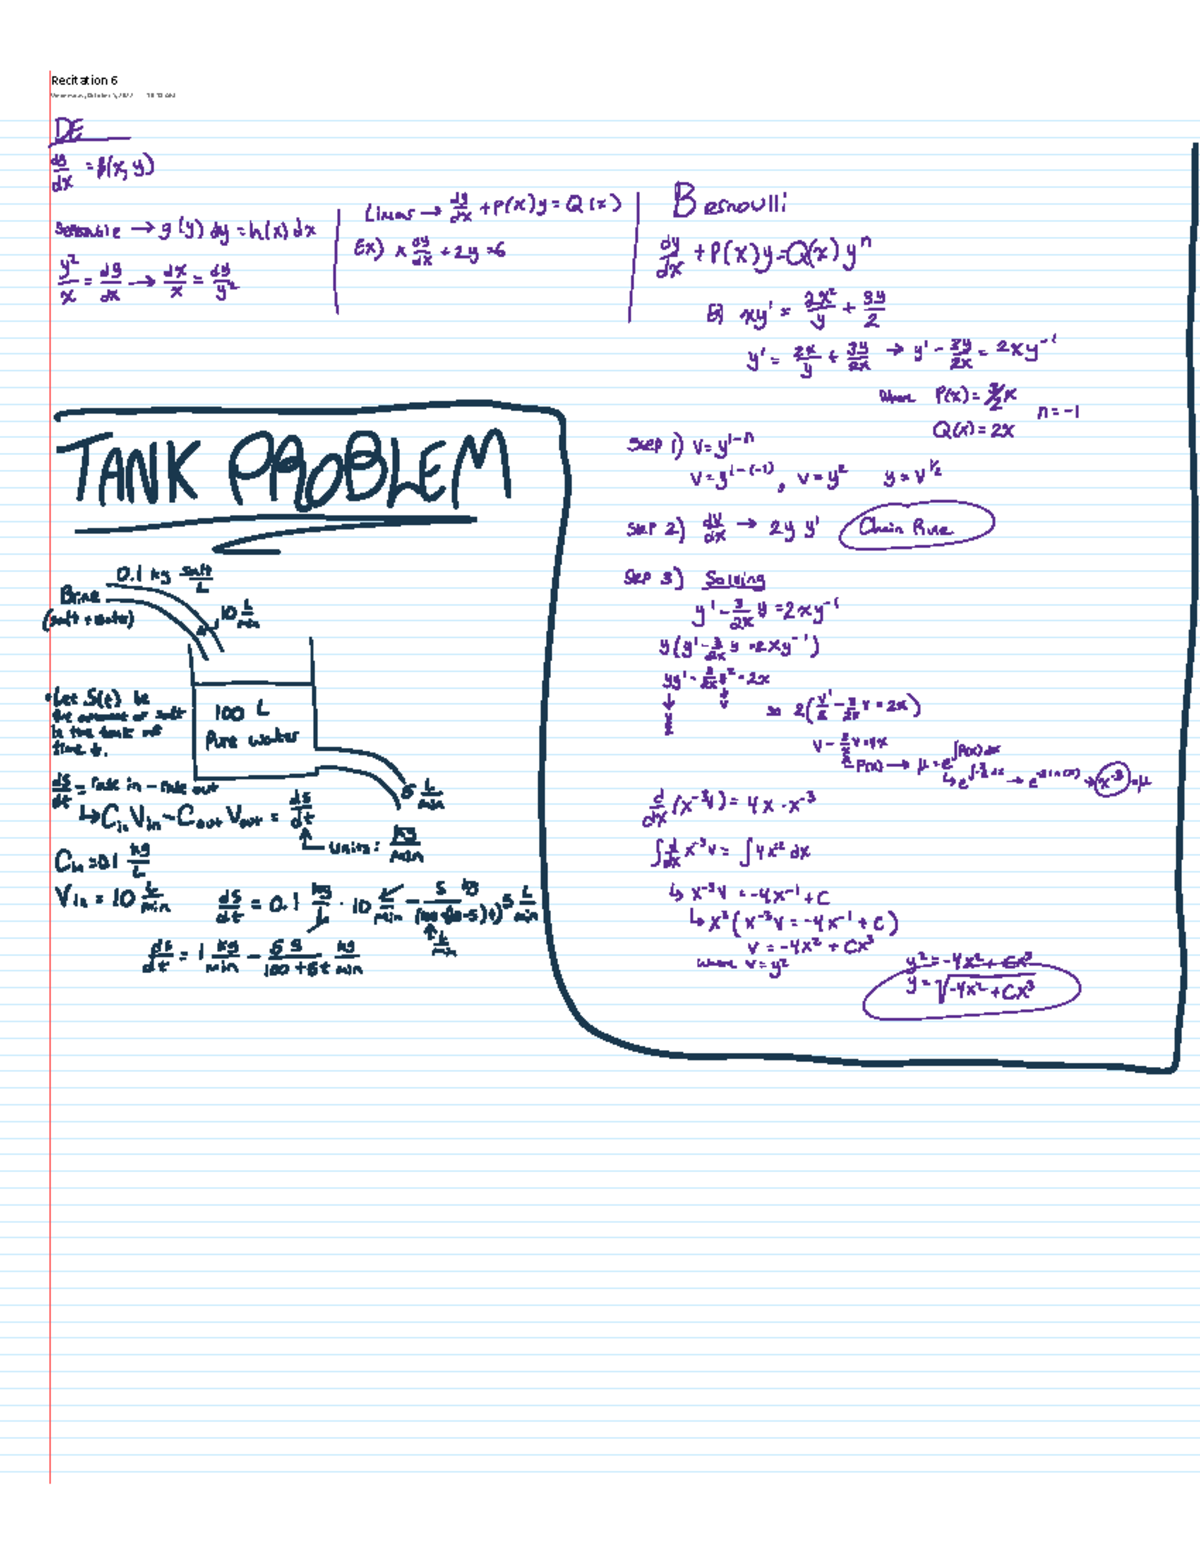 Recitation 6
DE
dy/dx = f(x, y)
Separable → g(y) dy = h(x) dx
y²/x = dy/dx → dx/x = dy/y²
Linear → dy/dx + P(x)y = Q(x)
Ex) x dy/dx + 2y = 6
Bernoulli
dy/dx + P(x)y = Q(x) yⁿ
Ex) xy' = 2x²/y + 3y/2
y' = 2x/y + 3y/2x → y' - 3y/2x = 2xy⁻¹
where P(x) = 3/2x
n = -1
Q(x) = 2x
Step 1) v = y¹⁻ⁿ
v = y¹⁻⁽⁻¹⁾, v = y² y = v^1/2
Step 2) dv/dx → 2y y' Chain Rule
Step 3) Solving
y' - 3/2x y = 2xy⁻¹
y(y' - 3/2x y = 2xy⁻¹)
yy' - 3/2x y² = 2x
so 2(v'/2 - 3/2x v = 2x)
P(x) → μ = e^∫P(x)dx
x⁻³ = μ
d/dx (x⁻³v) = 4x · x⁻³
∫ d/dx x⁻³v = ∫ 4x⁻² dx
↳ x⁻³v = -4x⁻¹ + C
↳ x³(x⁻³v = -4x⁻¹ + C)
v = -4x² + Cx³
where v = y²
y² = -4x² + Cx³
y = √(-4x² + Cx³)
TANK PROBLEM
0.1 kg salt/L
Brine
(salt + water)
10 L/min
• Let S(t) be
the amount of salt
in the tank at
time t.
100 L
Pure water
5 L/min
ds/dt = rate in - rate out
↳ C_in V_in - C_out V_out = ds/dt
Units: kg/min
C_in = 0.1 kg/L
V_in = 10 L/min
ds/dt = 0.1 kg/L · 10 L/min - S kg/(100 + (10-5)t) 5 L/min
L/min
ds/dt = 1 kg/min - 5S/100+5t kg/min